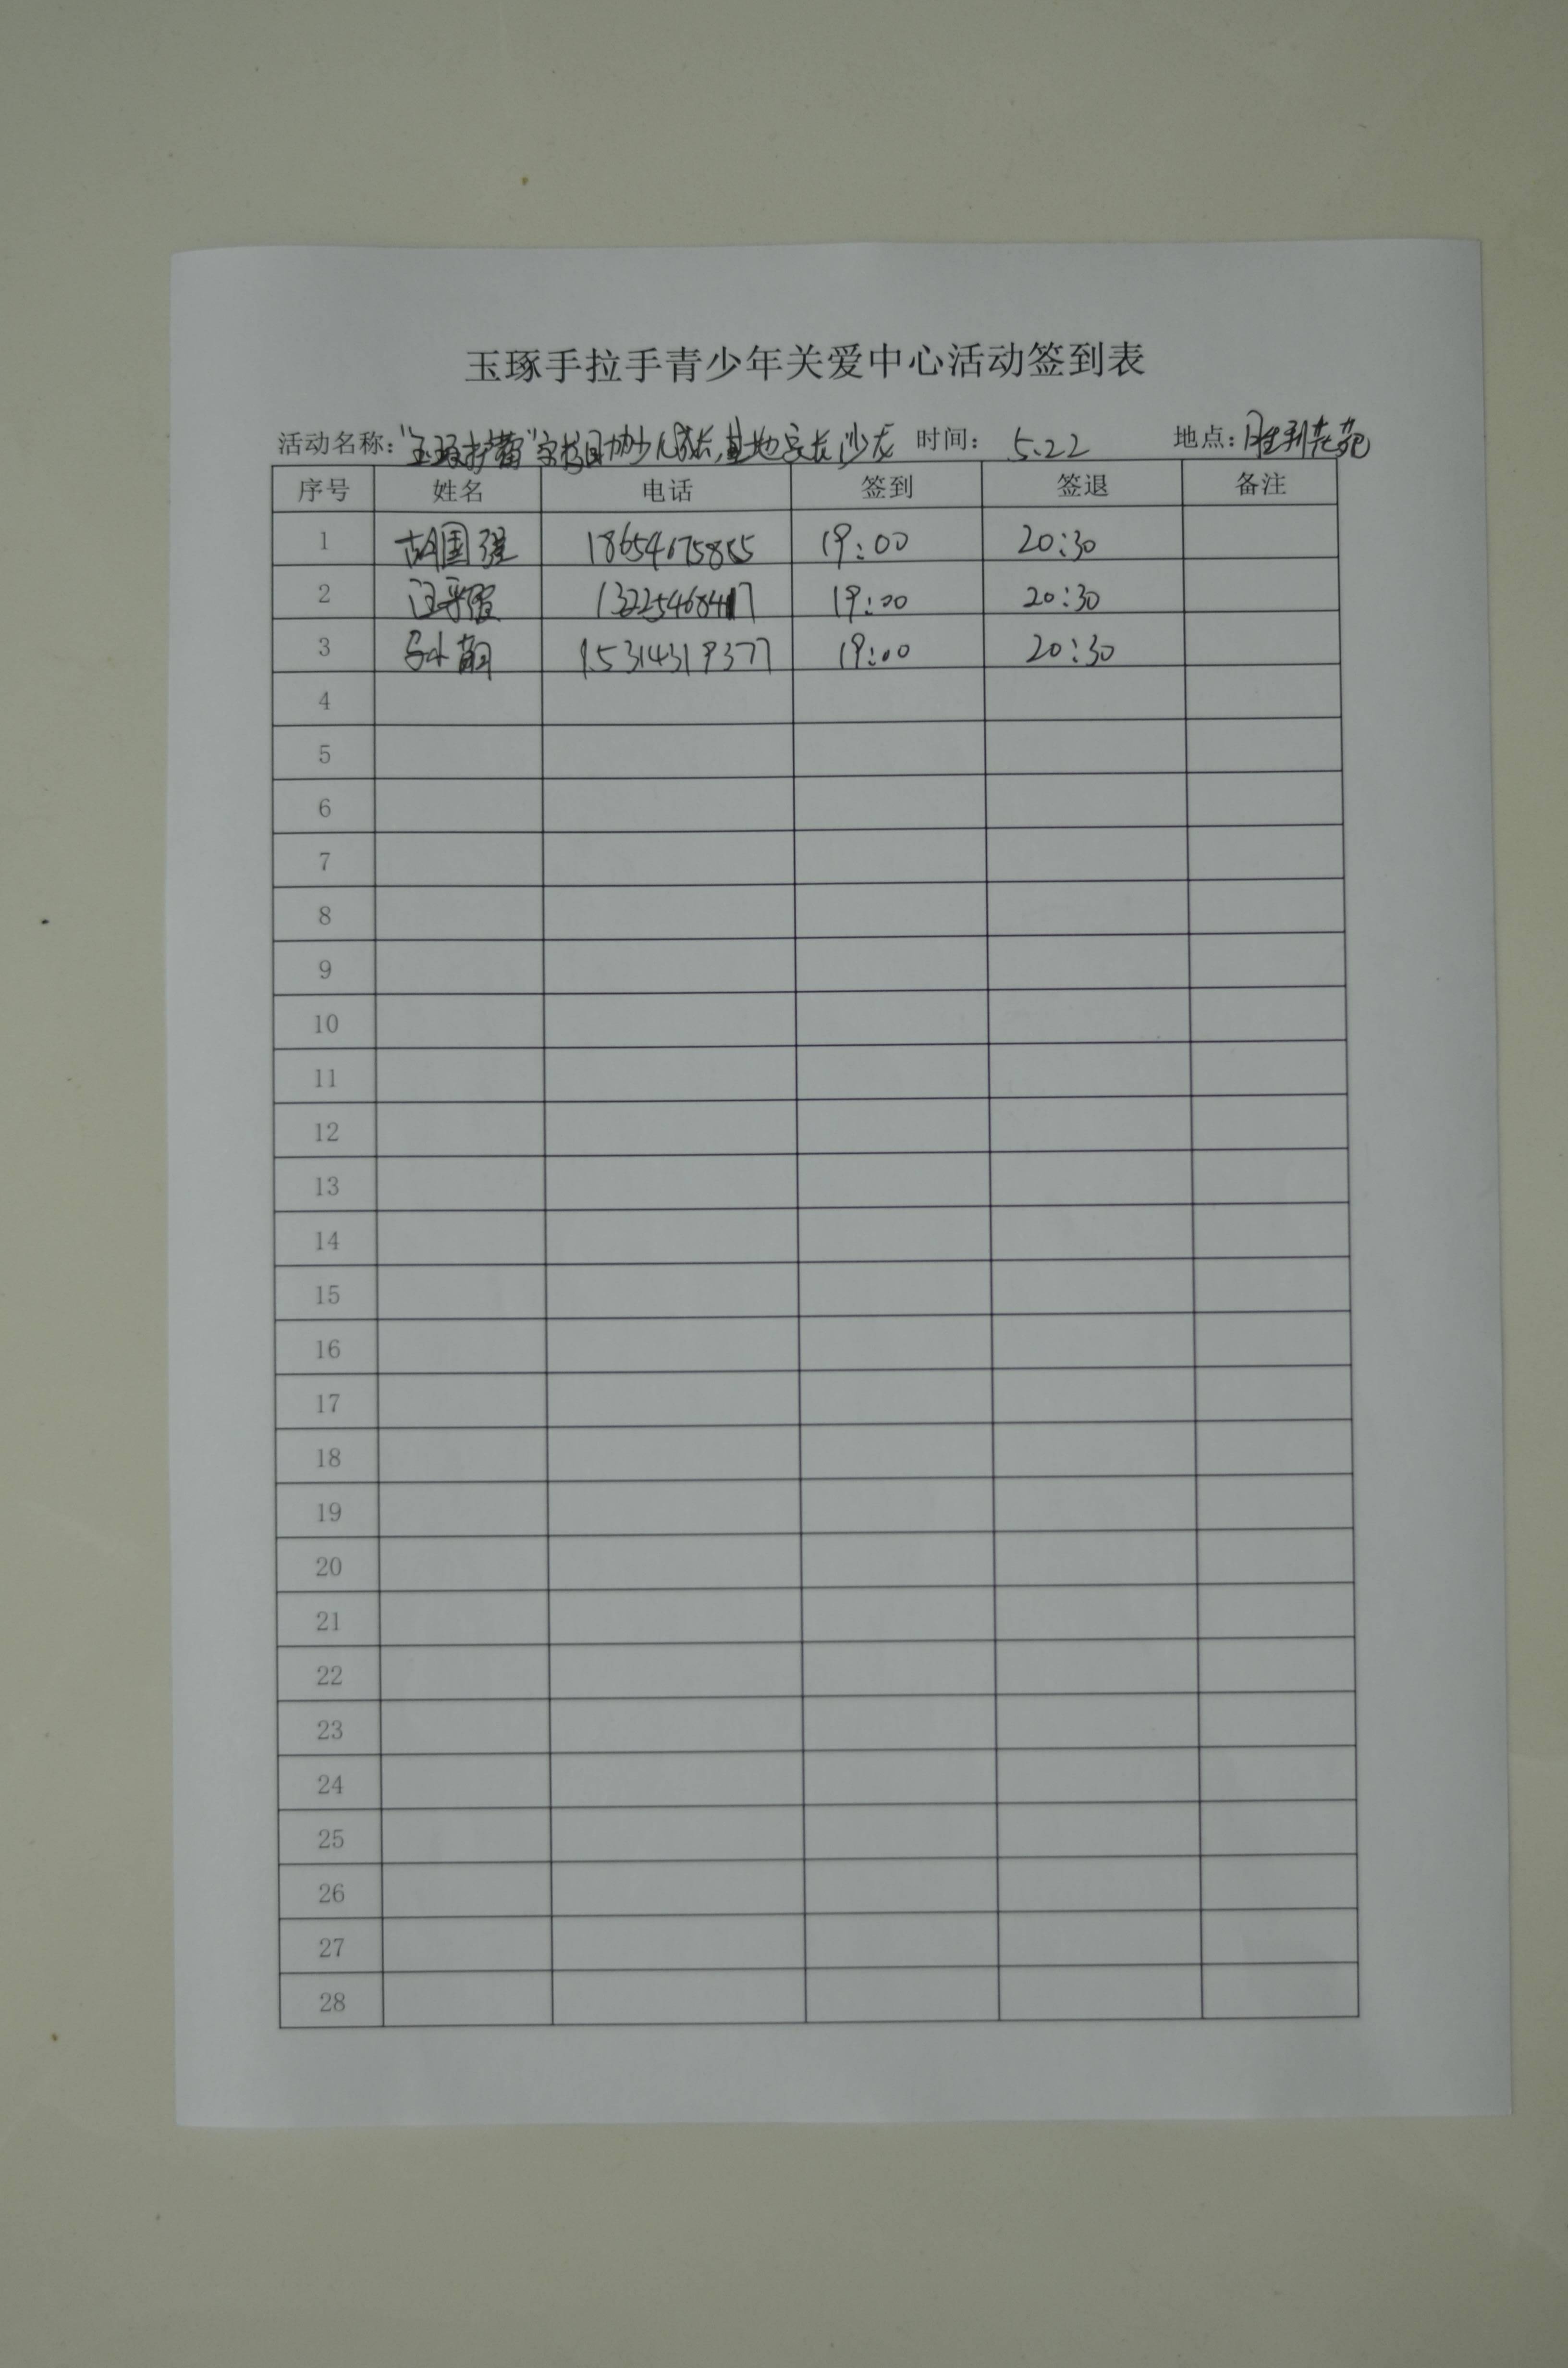 玉琢手拉手青少年关爱中心活动签到表
活动名称："玉琢护蕾"家校助力少儿成长,基地家长沙龙 时间： 5.22 地点：胜利花苑
序号 姓名 电话 签到 签退 备注
1 胡国强 18654675855 19:00 20:30
2 19:00 20:30
3 15314319377 19:00 20:30
4
5
6
7
8
9
10
11
12
13
14
15
16
17
18
19
20
21
22
23
24
25
26
27
28